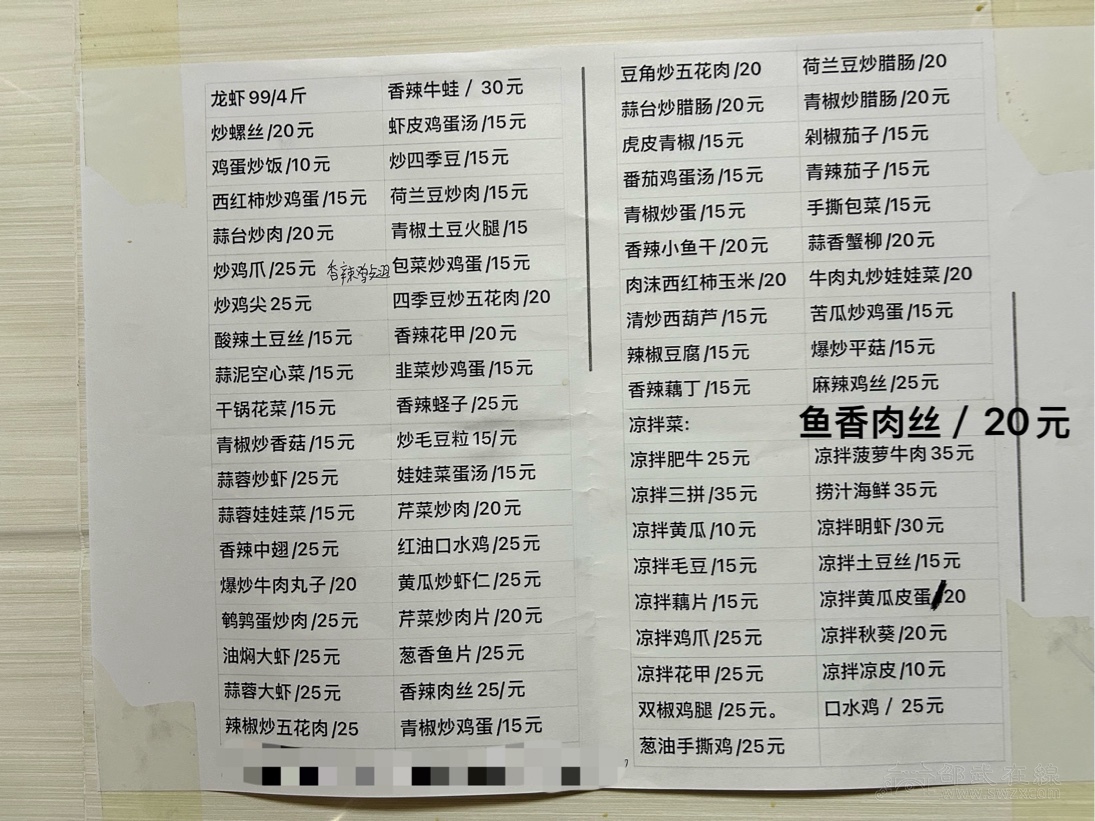 龙虾99/4斤
香辣牛蛙 / 30元
炒螺丝/20元
虾皮鸡蛋汤/15元
鸡蛋炒饭/10元
炒四季豆/15元
西红柿炒鸡蛋/15元
荷兰豆炒肉/15元
蒜台炒肉/20元
青椒土豆火腿/15
炒鸡爪/25元 香辣鸡
包菜炒鸡蛋/15元
炒鸡尖25元
四季豆炒五花肉/20
酸辣土豆丝/15元
香辣花甲/20元
蒜泥空心菜/15元
韭菜炒鸡蛋/15元
干锅花菜/15元
香辣蛏子/25元
青椒炒香菇/15元
炒毛豆粒15/元
蒜蓉炒虾/25元
娃娃菜蛋汤/15元
蒜蓉娃娃菜/15元
芹菜炒肉/20元
香辣中翅/25元
红油口水鸡/25元
爆炒牛肉丸子/20
黄瓜炒虾仁/25元
鹌鹑蛋炒肉/25元
芹菜炒肉片/20元
油焖大虾/25元
葱香鱼片/25元
蒜蓉大虾/25元
香辣肉丝25/元
辣椒炒五花肉/25
青椒炒鸡蛋/15元
豆角炒五花肉/20
荷兰豆炒腊肠/20
蒜台炒腊肠/20元
青椒炒腊肠/20元
虎皮青椒/15元
剁椒茄子/15元
番茄鸡蛋汤/15元
青辣茄子/15元
青椒炒蛋/15元
手撕包菜/15元
香辣小鱼干/20元
蒜香蟹柳/20元
肉沫西红柿玉米/20
牛肉丸炒娃娃菜/20
清炒西葫芦/15元
苦瓜炒鸡蛋/15元
辣椒豆腐/15元
爆炒平菇/15元
香辣藕丁/15元
麻辣鸡丝/25元
凉拌菜:
鱼香肉丝 / 20元
凉拌肥牛25元
凉拌菠萝牛肉35元
凉拌三拼/35元
捞汁海鲜35元
凉拌黄瓜/10元
凉拌明虾/30元
凉拌毛豆/15元
凉拌土豆丝/15元
凉拌藕片/15元
凉拌黄瓜皮蛋/20
凉拌鸡爪/25元
凉拌秋葵/20元
凉拌花甲/25元
凉拌凉皮/10元
双椒鸡腿/25元。
口水鸡 / 25元
葱油手撕鸡/25元